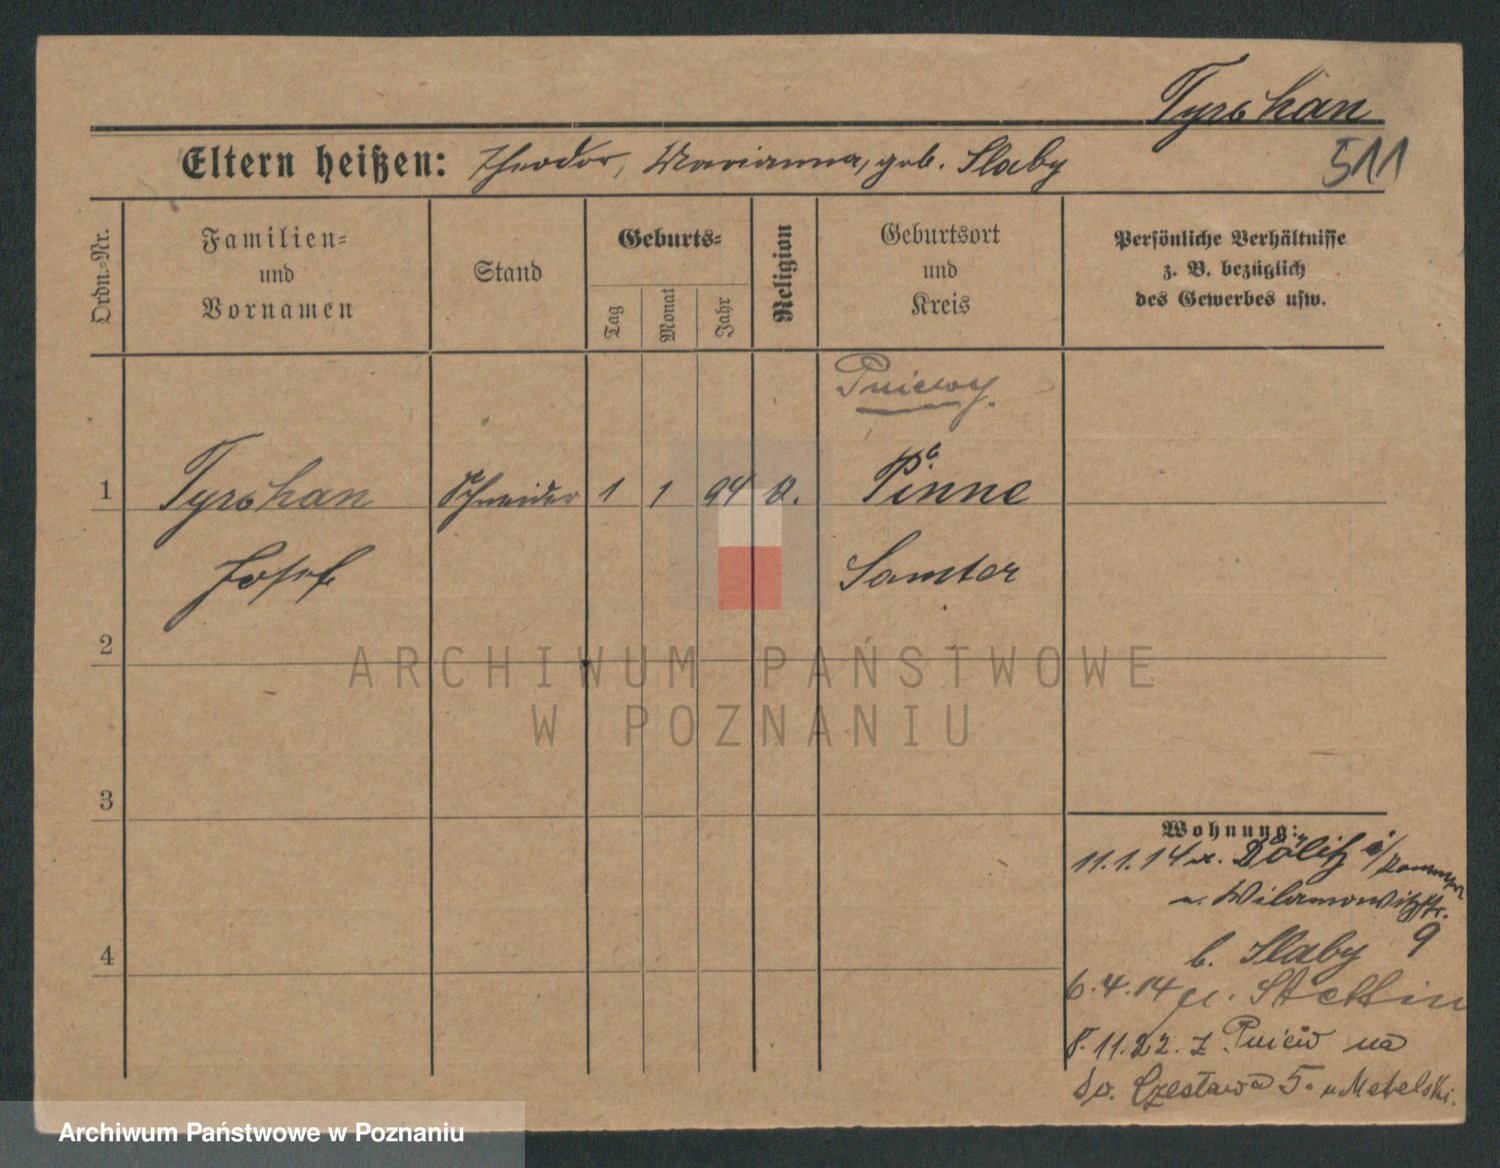 Tyrshan
Eltern heißen: Theodor, Marianna, geb. Slaby
511
Ordn.-Nr.
Familien-
und
Vornamen
Stand
Geburts-
Tag
Monat
Jahr
Religion
Geburtsort
und
Kreis
Persönliche Verhältnisse
z. B. bezüglich
des Gewerbes usw.
Pniewy.
1 Tyrshan Schneider 1 1 94 k. Pinne
Josef Samter
2
3
4
Wohnung:
11.1.14 v. Dölitz i/Pommern
n. Wilamowitzstr.
9
b. Slaby
6.4.14 n. Stettin
8.11.22. z Pniew na
Św. Czesława 5. u Metelski.
ARCHIWUM PAŃSTWOWE
W POZNANIU
Archiwum Państwowe w Poznaniu